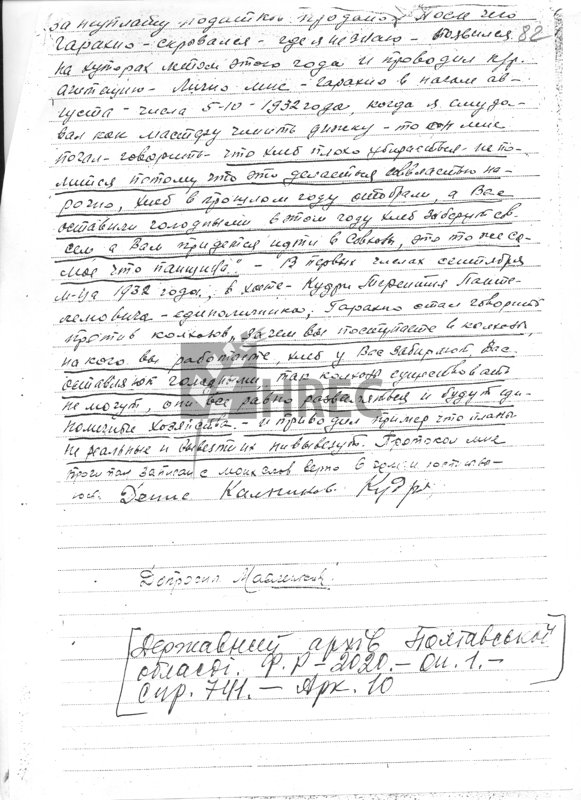 за неуплату податков продано. После чего
Гаракно - скровался - где я не знаю - появился 82
на хуторах летом этого года и проводил к/р.
агитацию - Лично мне - Гаракно в начале ав-
густа - числа 5-10 - 1932 года, когда я
вал как мастеру чинить діжку - то он мне
почал - говорить - что хлеб плохо убираеться - не мо-
лится потому что это делается соввластью на-
рочно, хлеб в прошлом году отобрали, а Вас
оставили голодными в этом году хлеб заберут св-
сем а Вам придется идти в Совхозы, это то же са-
мое что панщина" - В первых числах сентября
м-ца 1932 года, в хате - Кудри Терентия Панте-
лемовича - единоличника, Гаракно стал говорить
против колхозов, зачем вы поступаете в колхозы,
на кого вы работаете, хлеб у Вас забирают Вас
оставляют голодными, так колхозы существовать
не могут, они все равно разваляться и будут еди-
ноличные хозяйства. - и приводил пример что планы
не реальные и вывезти их не вывезут. Протокол мне
прочитан записан с моих слов верно в чем и
Денис Калников. Кудря
HREC
Допросил
[Державний архів Полтавської
області. Ф. Р-2020. - Оп. 1. -
Спр. 741. - Арк. 10]